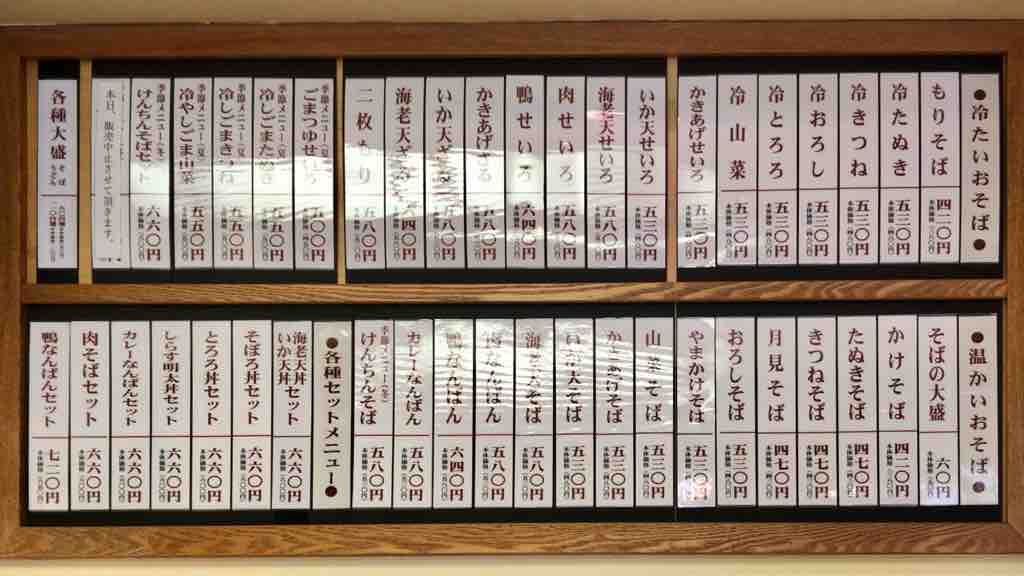 ●冷たいおそば●
もりそば 四二〇円
冷たぬき 五三〇円
冷きつね 五三〇円
冷おろし 五三〇円
冷とろろ 五三〇円
冷山菜 五三〇円
かきあげせいろ 五三〇円
いか天せいろ 五三〇円
海老天せいろ 五八〇円
肉せいろ 五八〇円
鴨せいろ 六四〇円
かきあげざる 五八〇円
いか天ざる 五八〇円
海老天ざる 六四〇円
二枚もり 五八〇円
季節メニュー(夏)
ごまつゆせいろ 五〇〇円
季節メニュー(夏)
冷しごまたぬき 五五〇円
季節メニュー(夏)
冷しごまきつね 五五〇円
季節メニュー(夏)
冷やしごま山菜 五五〇円
季節メニュー(冬)
けんちんそばセット 六六〇円
本日、販売中止させて頂きます。
各種大盛 そば うどん
●温かいおそば●
そばの大盛 六〇円
かけそば 四二〇円
たぬきそば 四七〇円
きつねそば 四七〇円
月見そば 四七〇円
おろしそば 五三〇円
やまかけそば 五三〇円
山菜そば 五三〇円
かきあげそば 五三〇円
いか天そば 五三〇円
海老天そば 五八〇円
肉なんばん 五八〇円
鴨なんばん 六四〇円
カレーなんばん 五八〇円
季節メニュー(冬)
けんちんそば 五八〇円
●各種セットメニュー●
海老天丼セット
いか天丼 六六〇円
そぼろ丼セット 六六〇円
とろろ丼セット 六六〇円
しらす明太丼セット 六六〇円
カレーなんばんセット 六六〇円
肉そばセット 六六〇円
鴨なんばんセット 七二〇円